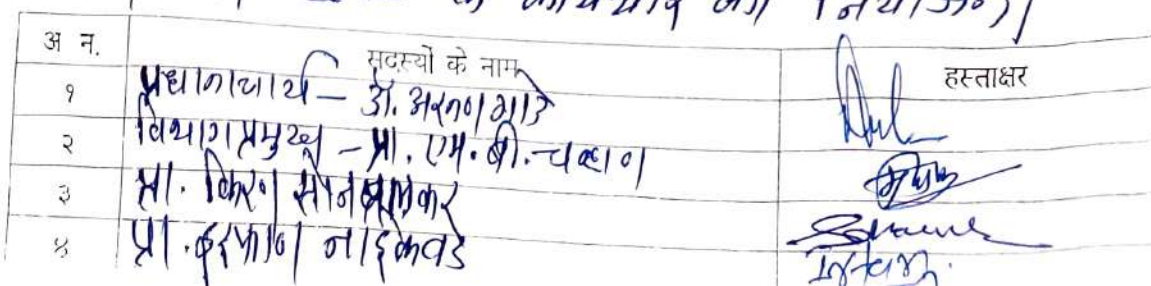 के कार्यभार का नियोजन।
अ न. सदस्यों के नाम हस्ताक्षर
१ प्रधानाचार्य – डॉ. अरुण गाडे
२ विभागप्रमुख – प्रा. एम. बी. चव्हाण
३ प्रा. किरण
४ प्रा. इरफाण नाईकवडे